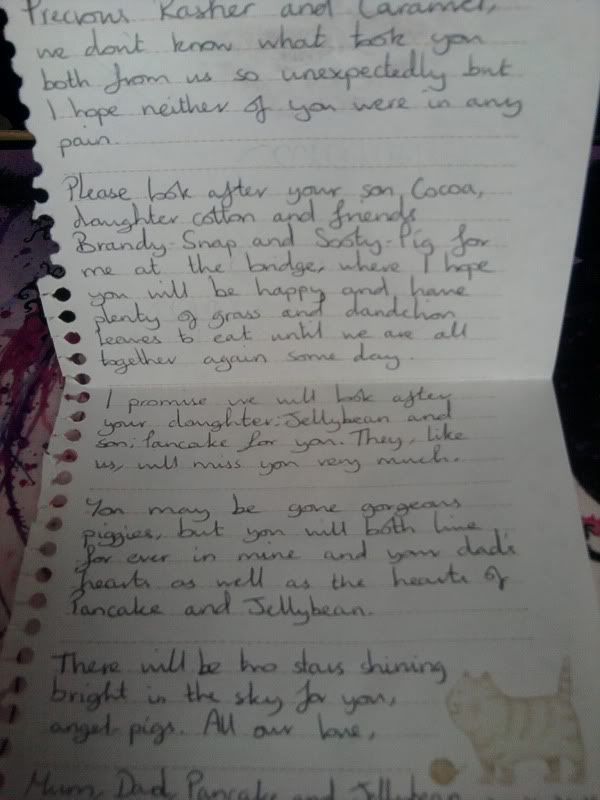 Precious Rasher and Caramel,
we don't know what took you
both from us so unexpectedly but
I hope neither of you were in any
pain.
Please look after your son, Cocoa,
daughter cotton and friends
Brandy-Snap and Sooty-Pig for
me at the bridge, where I hope
you will be happy and have
plenty of grass and dandelion
leaves to eat until we are all
together again some day.
I promise we will look after
your daughter; Jellybean and
son; Pancake for you. They, like
us, will miss you very much.
You may be gone gorgeous
piggies, but you will both live
for ever in mine and your dad's
hearts as well as the hearts of
Pancake and Jellybean.
There will be two stars shining
bright in the sky for you,
angel pigs. All our love,
Mum, Dad, Pancake and Jellybean